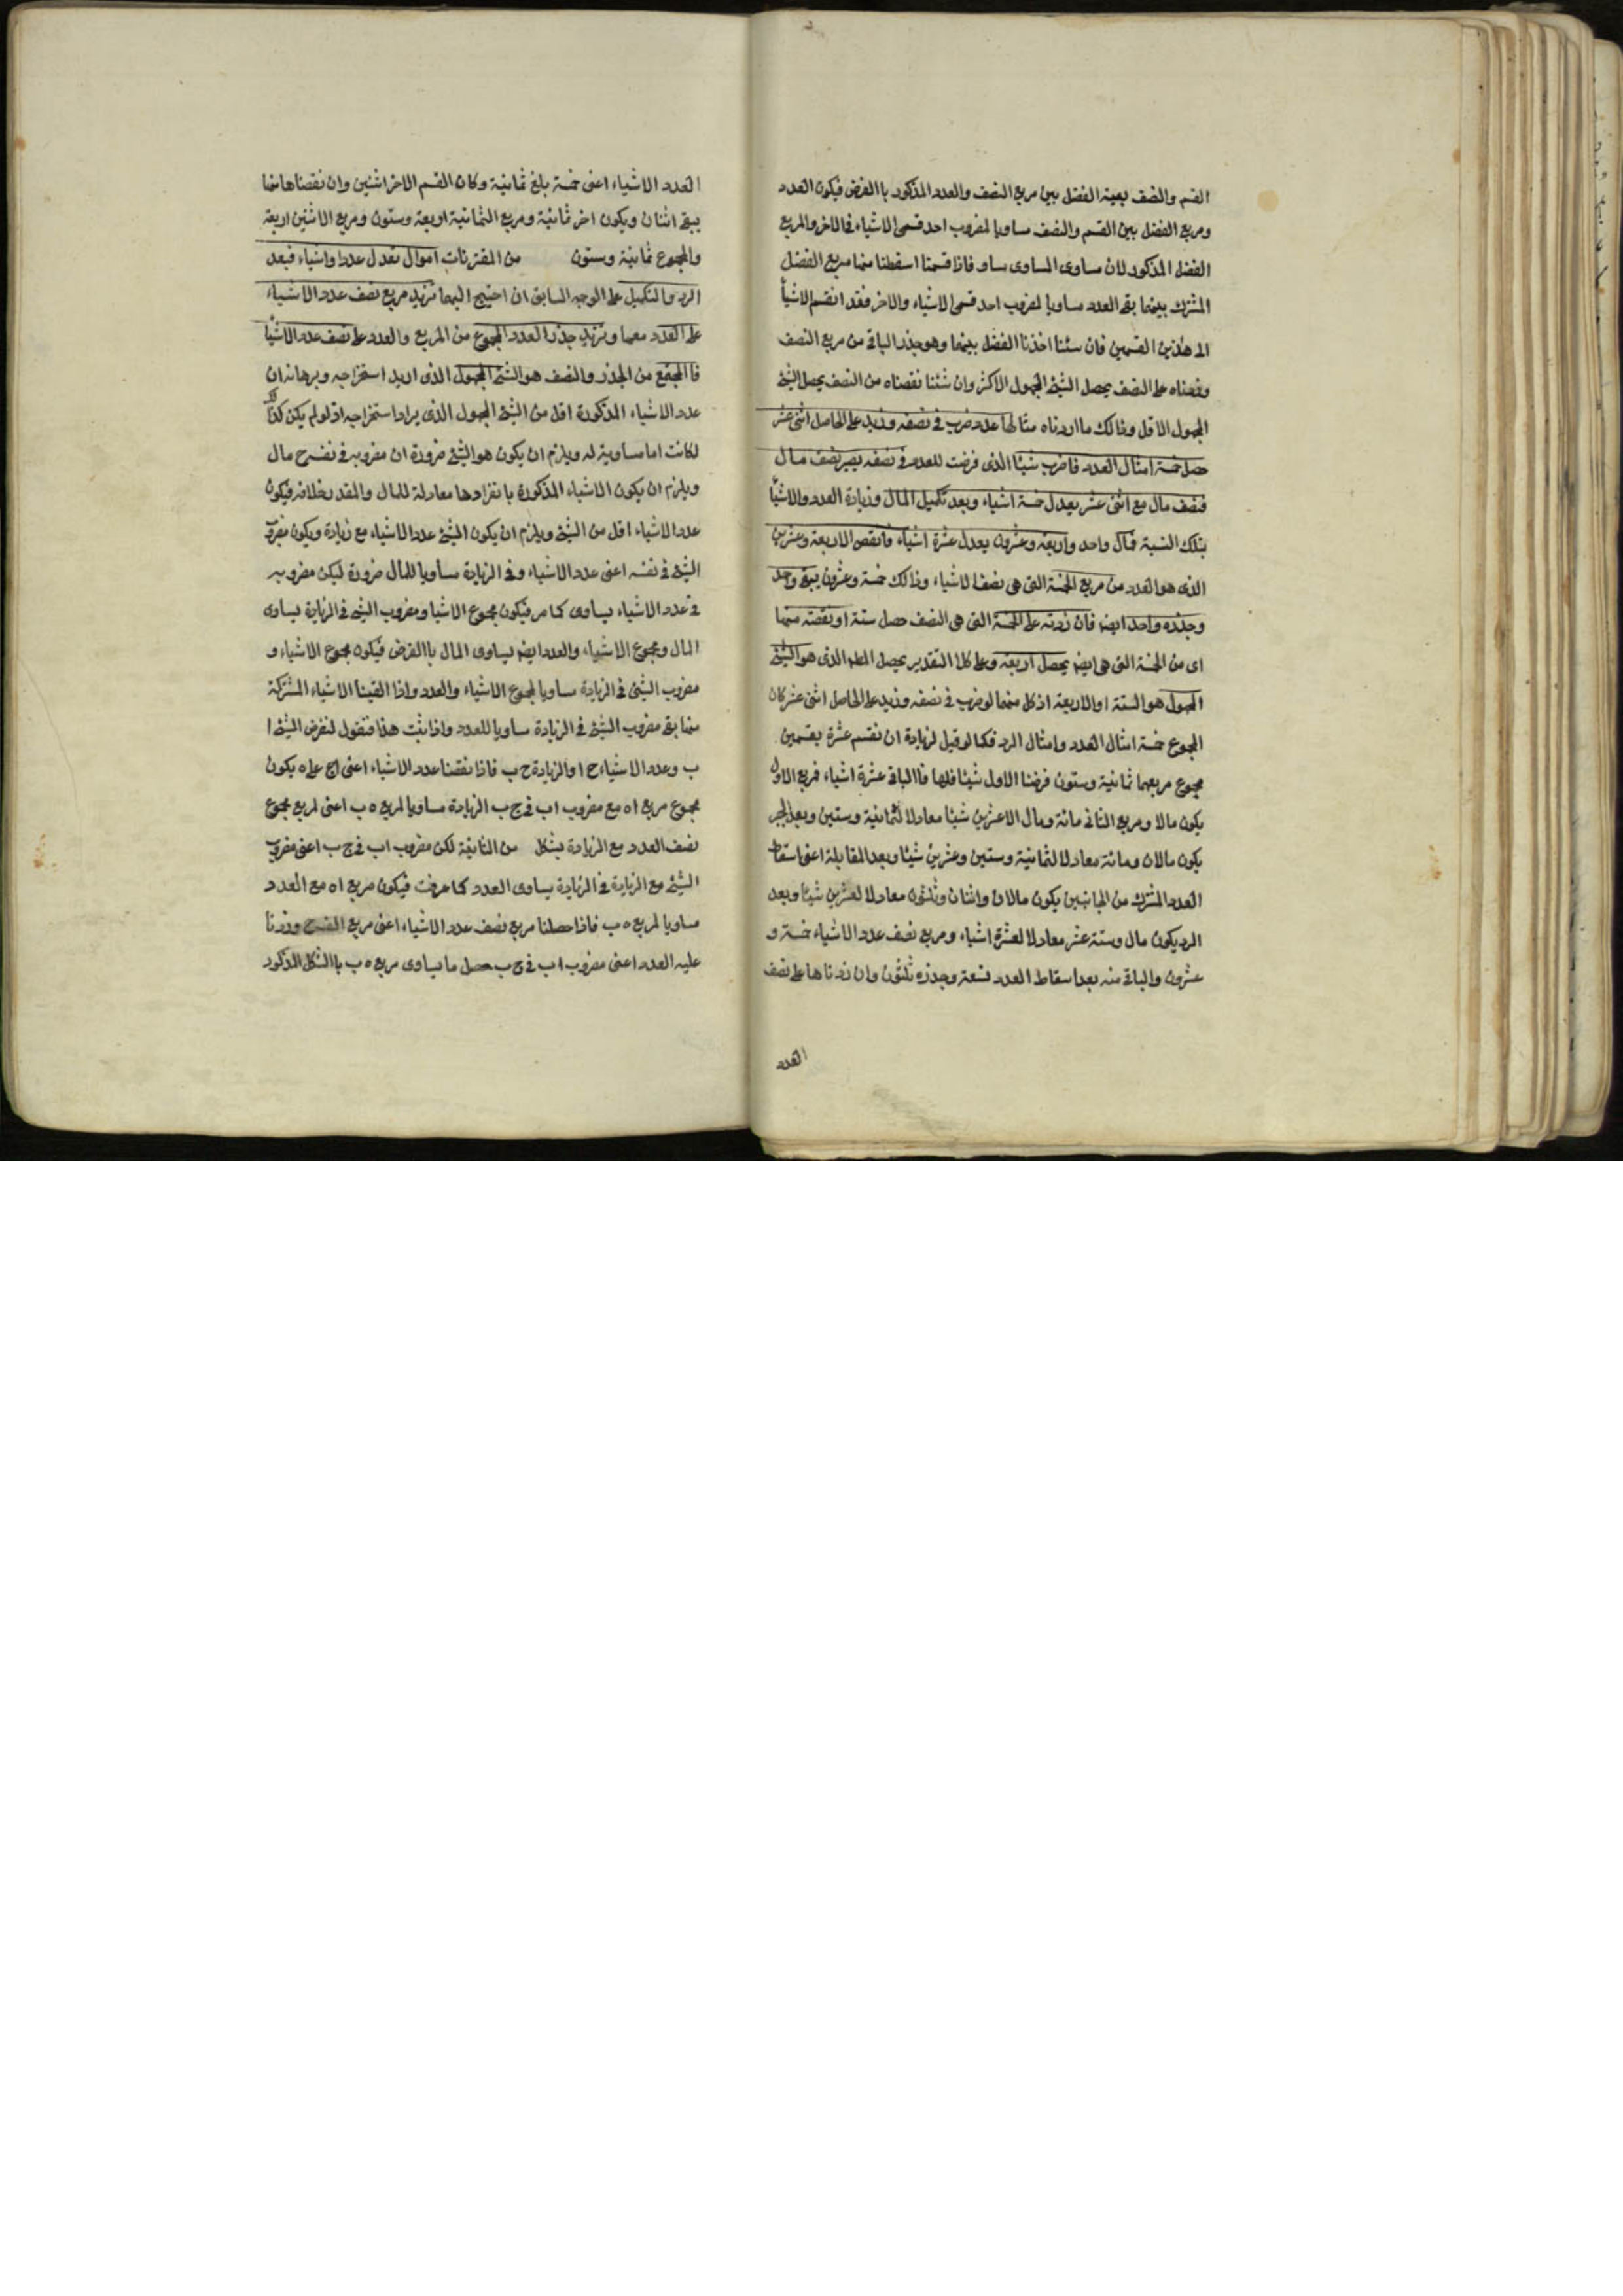 القسم والنصف بعينه الفضل بين مربع النصف والعدد المذكور باالفرض فيكون العدد
ومربع الفضل بين القسم والنصف مساويا لمضروب احد قسمى الاشياء فى الاخر والمربع
الفضل المذكور لان مساوى المساوى مساو فاذا قسمنا اسقطنا منها مربع الفضل
المشترك بينهما بقى العدد مساويا لمضروب احد قسمى الاشياء والاخر فقد انقسم الاشيأ
الى هذين القسمين فان سئنا اخذنا الفضل بينهما وهو جذر الباقى من مربع النصف
وضعناه على النصف يحصل الشيئ المجهول الاكثر وان شئنا نقصناه من النصف يحصل الشيئ
المجهول الاقل وذالك مااردناه مثالها عدد ضرب فى نصفه وزيد على الحاصل اثنى عشر
حصل خمسة امثال العدد فاضرب شيئا الذى فرضت للعدد فى نصفه يصير نصف مال
فنصف مال مع اثنى عشر يعدل خمسة اشياء وبعد تكميل المال وزيادة العدد والاشيأ
بتلك النسبة فمال واحد واربعة وعشرون يعدل عشرة اشياء فانقص الاربعة وعشرين
الذى هو العدد من مربع الخمسة التى هى نصف الاشياء وذالك خمسة وعشرون يبقى واحد
وجذره واحد ايضا فان زدته على الخمسة التى هى النصف حصل ستة او نقصته منها
اى من الخمسة التى هى ايضا يحصل اربعة وعلى كلا التقدير يحصل المط الذى هو الشيئ
المجهول هو الستة او الاربعة اذ كل منهما لو ضرب فى نصفه وزيد على الحاصل اثنى عشر كان
المجموع خمسة امثال العدد وامثال الرد فكما لو قيل لزيادة ان نقسم عشرة بقسمين
مجموع مربعهما ثمانية وستون فرضنا الاول شيئا فاالباقى عشرة اشياء فمربع الاول
يكون مالا ومربع الثانى مائة ومال الاعشرين شيئا معادلا لثمانية وستين وبعد الجبر
يكون مالان ومائة معادلا لثمانية وستين وعشرين شيئا وبعد المقابلة اعنى اسقاط
العدد المشترك من الجانبين يكون مالان واثنان وثلثون معادلا لعشرين شيئا وبعد
الرد يكون مال وستة عشر معادلا لعشرة اشياء ومربع نصف عدد الاشياء خمسة و
عشرون والباقى منه بعد اسقاط العدد تسعة وجذره ثلثون وان زدناها على نصف
العدد
العدد الاشياء اعنى خمسة بلغ ثمانية وكان القسم الاخر اثنين وان نقصناها منها
يبقى اثنان ويكون اخر ثمانية ومربع الثمانية اربعة وستون ومربع الاثنين اربعة
والمجموع ثمانية وستون من المقترنات اموال تعدل عددا واشياء فبعد
الرد والتكميل على الوجه السابق ان احتيج اليهما تزيد مربع نصف عدد الاشياء
على العدد معها وتزيد جذر العدد المجموع من المربع والعدد على نصف عدد الاشيأ
فاالمجتمع من الجذر والنصف هو الشئ المجهول الذى اريد استخراجه وبرهانه ان
عدد الاشياء المذكورة اقل من الشيئ المجهول الذى يراد استخراجه اذ لو لم يكن كذلك
لكانت اما مساوية له ويلزم ان يكون هو الشيئ ضرورة ان مضروبه فى نفسه مال
ويلزم ان يكون الاشياء المذكورة بانفرادها معادلة للمال والمقدر بخلافه فيكون
عدد الاشياء اقل من الشيئ ويلزم ان يكون الشيئ عدد الاشياء مع زيادة ويكون مضروب
الشيئ فى نفسه اعنى عدد الاشياء وفى الزيادة مساويا للمال ضرورة ليكن مضروبه
فى عدد الاشياء يساوى كما مر فيكون مجموع الاشيا ومضروب الشئ فى الزيادة يساوى
المال ومجموع الاشياء والعدد ايضا يساوى المال باالفرض فيكون مجموع الاشياء و
مضروب الشيئ فى الزيادة مساويا لمجموع الاشياء والعدد واذا القينا الاشياء المشتركة
منهما بقى مضروب الشيئ فى الزيادة مساويا للعدد واذا ثبت هذا فنقول لنفرض الشيئ ا
ب وعدد الاشياء ح ا والزيادة ح ب فاذا نقصنا عدد الاشياء اعنى اح على ه يكون
مجموع مربع اه مع مضروب اب فى ج ب الزيادة مساويا لمربع ه ب اعنى لمربع مجموع
نصف العدد مع الزيادة بشكل من الثانية لكن مضروب اب فى ج ب اعنى مضروب
الشيئ مع الزيادة فى الزيادة يساوى العدد كما عرفت فيكون مربع اه مع العدد
مساويا لمربع ه ب فاذا حصلنا مربع نصف عدد الاشياء اعنى مربع وزدنا
عليه العدد اعنى مضروب اب فى ج ب حصل ما يساوى مربع ه ب باالشكل المذكور